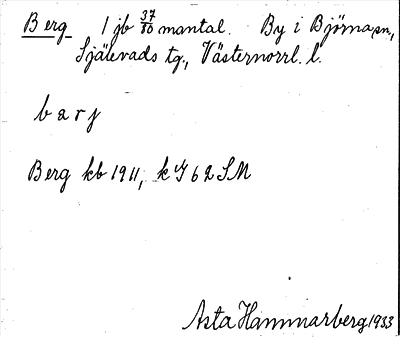 Berg 1 jb 37/80 mantal. By i Björna sn,
Själevads tg., Västernorrl. l.
barj
Berg kb 1911, k I 62 SM
Asta Hammarberg 1933